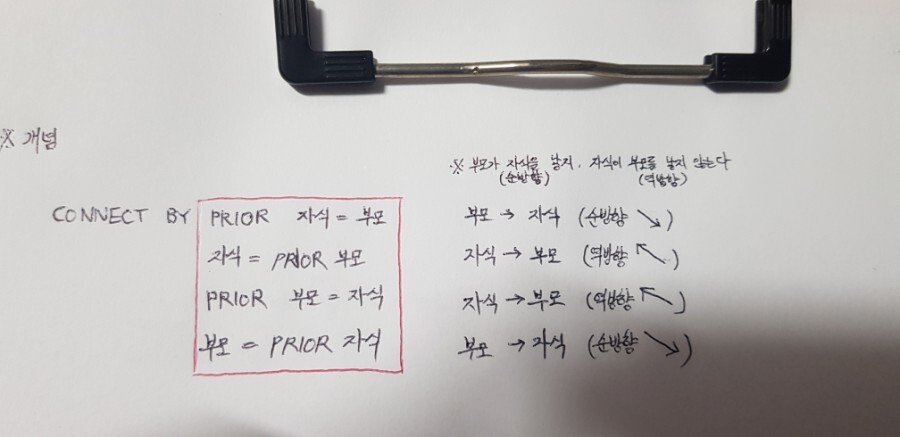 ※ 개념
※ 부모가 자식을 낳지, 자식이 부모를 낳지 않는다
(순방향) (역방향)
CONNECT BY PRIOR 자식 = 부모 부모 → 자식 (순방향 ↘)
자식 = PRIOR 부모 자식 → 부모 (역방향 ↖)
PRIOR 부모 = 자식 자식 → 부모 (역방향 ↖)
부모 = PRIOR 자식 부모 → 자식 (순방향 ↘)